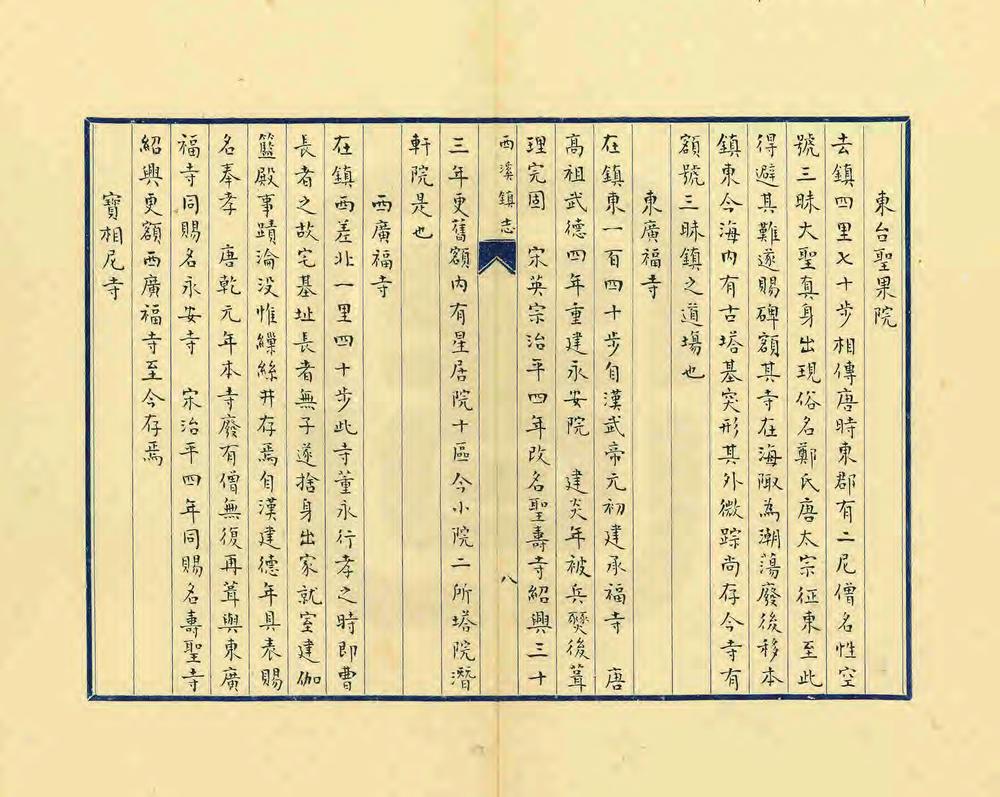 東台聖果院
去鎮四里七十步相傳唐時東郡有二尼僧名性空
號三昧大聖真身出現俗名鄭氏唐太宗征東至此
得避其難遂賜碑額其寺在海陬為潮蕩廢後移本
鎮東今海內有古塔基突形其外微踪尚存今寺有
額號三昧鎮之道場也
東廣福寺
在鎮東一百四十步自漢武帝元初建承福寺　唐
高祖武德四年重建永安院　建炎年被兵燹後葺
理完固　宋英宗治平四年改名聖壽寺紹興三十
西溪鎮志
八
三年更舊額內有星居院十區今小院二所塔院潛
軒院是也
西廣福寺
在鎮西差北一里四十步此寺董永行孝之時即曹
長者之故宅基址長者無子遂捨身出家就室建伽
籃殿事蹟淪没惟繅絲井存焉自漢建德年具表賜
名奉孝　唐乾元年本寺廢有僧無復再葺與東廣
福寺同賜名永安寺　宋治平四年同賜名壽聖寺
紹興更額西廣福寺至今存焉
寶相尼寺